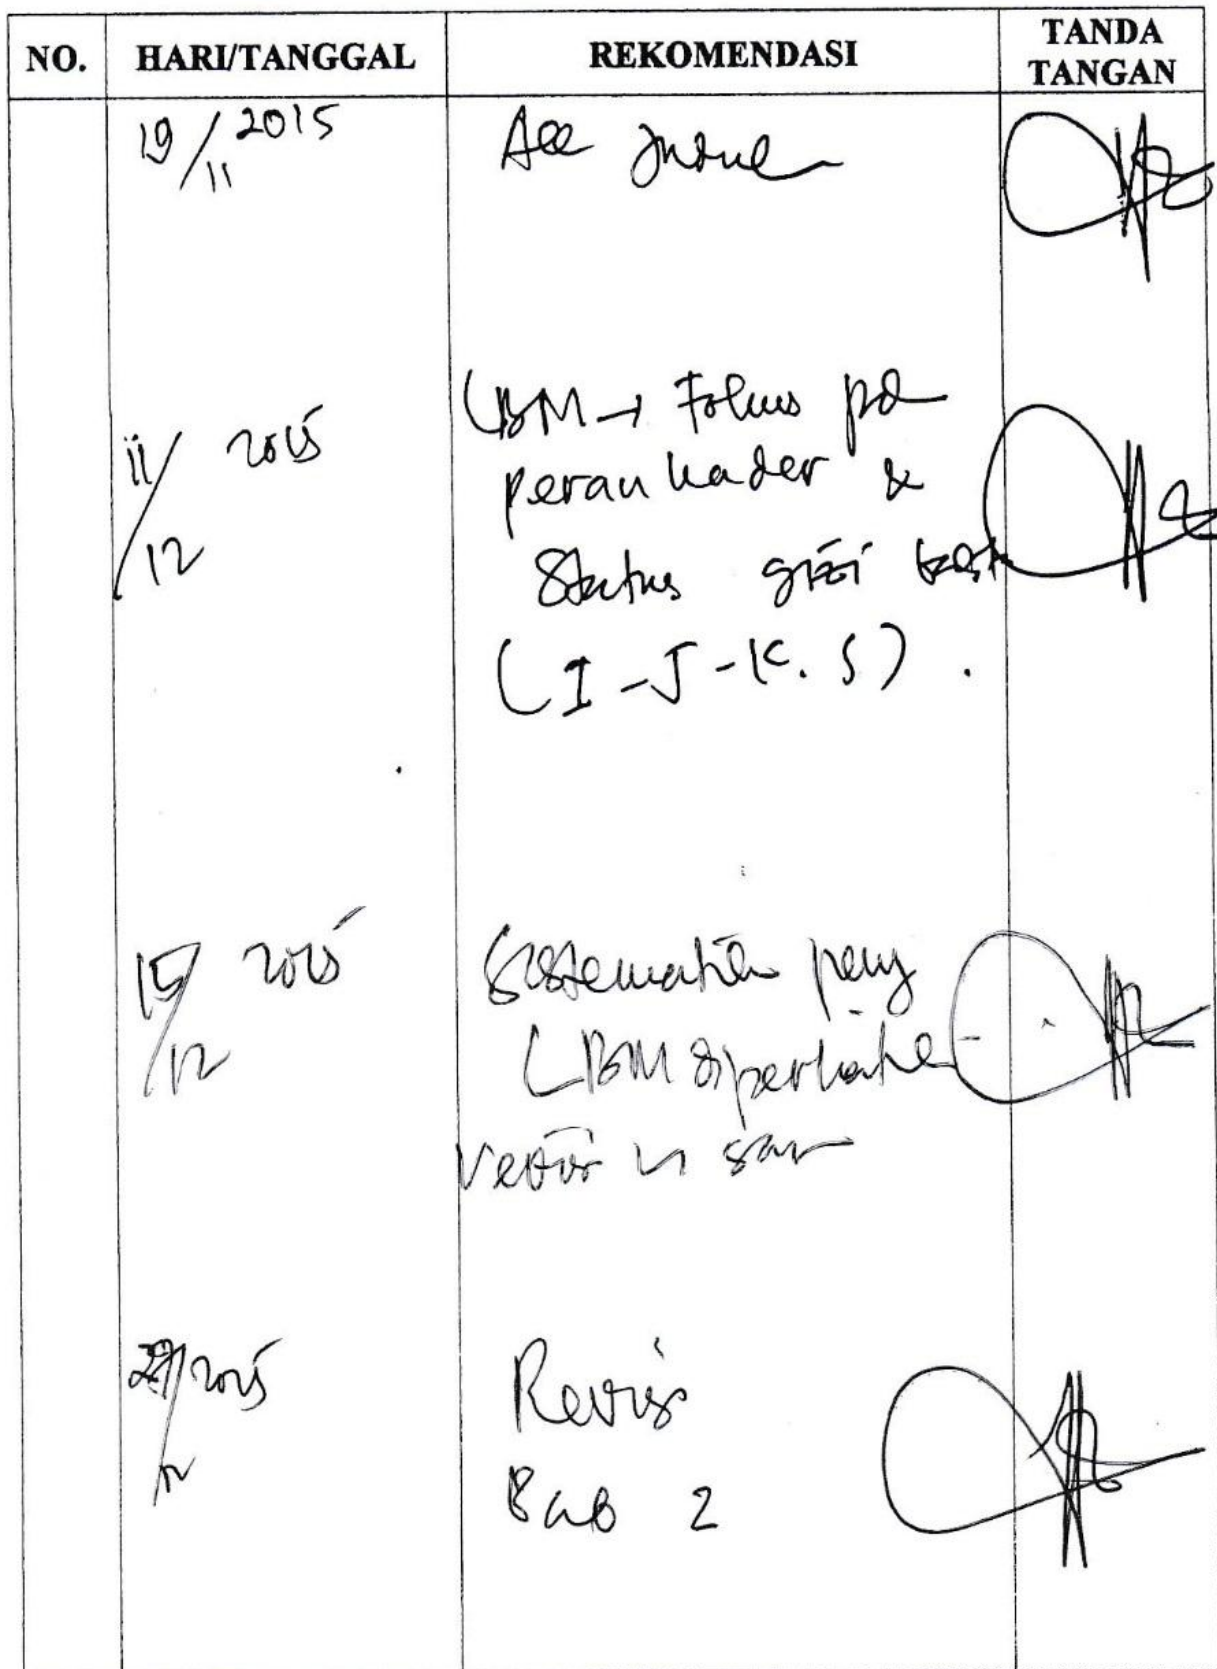 NO. HARI/TANGGAL REKOMENDASI TANDA TANGAN
19/11 2015 Acc Judul
11/12 2015 LBM → Fokus pd
peran kader &
Status gizi
(I-J-K.S).
15/12 2015 Sistematika peny
LBM diperbaiki
revisi
2015 Revisi
Bab 2